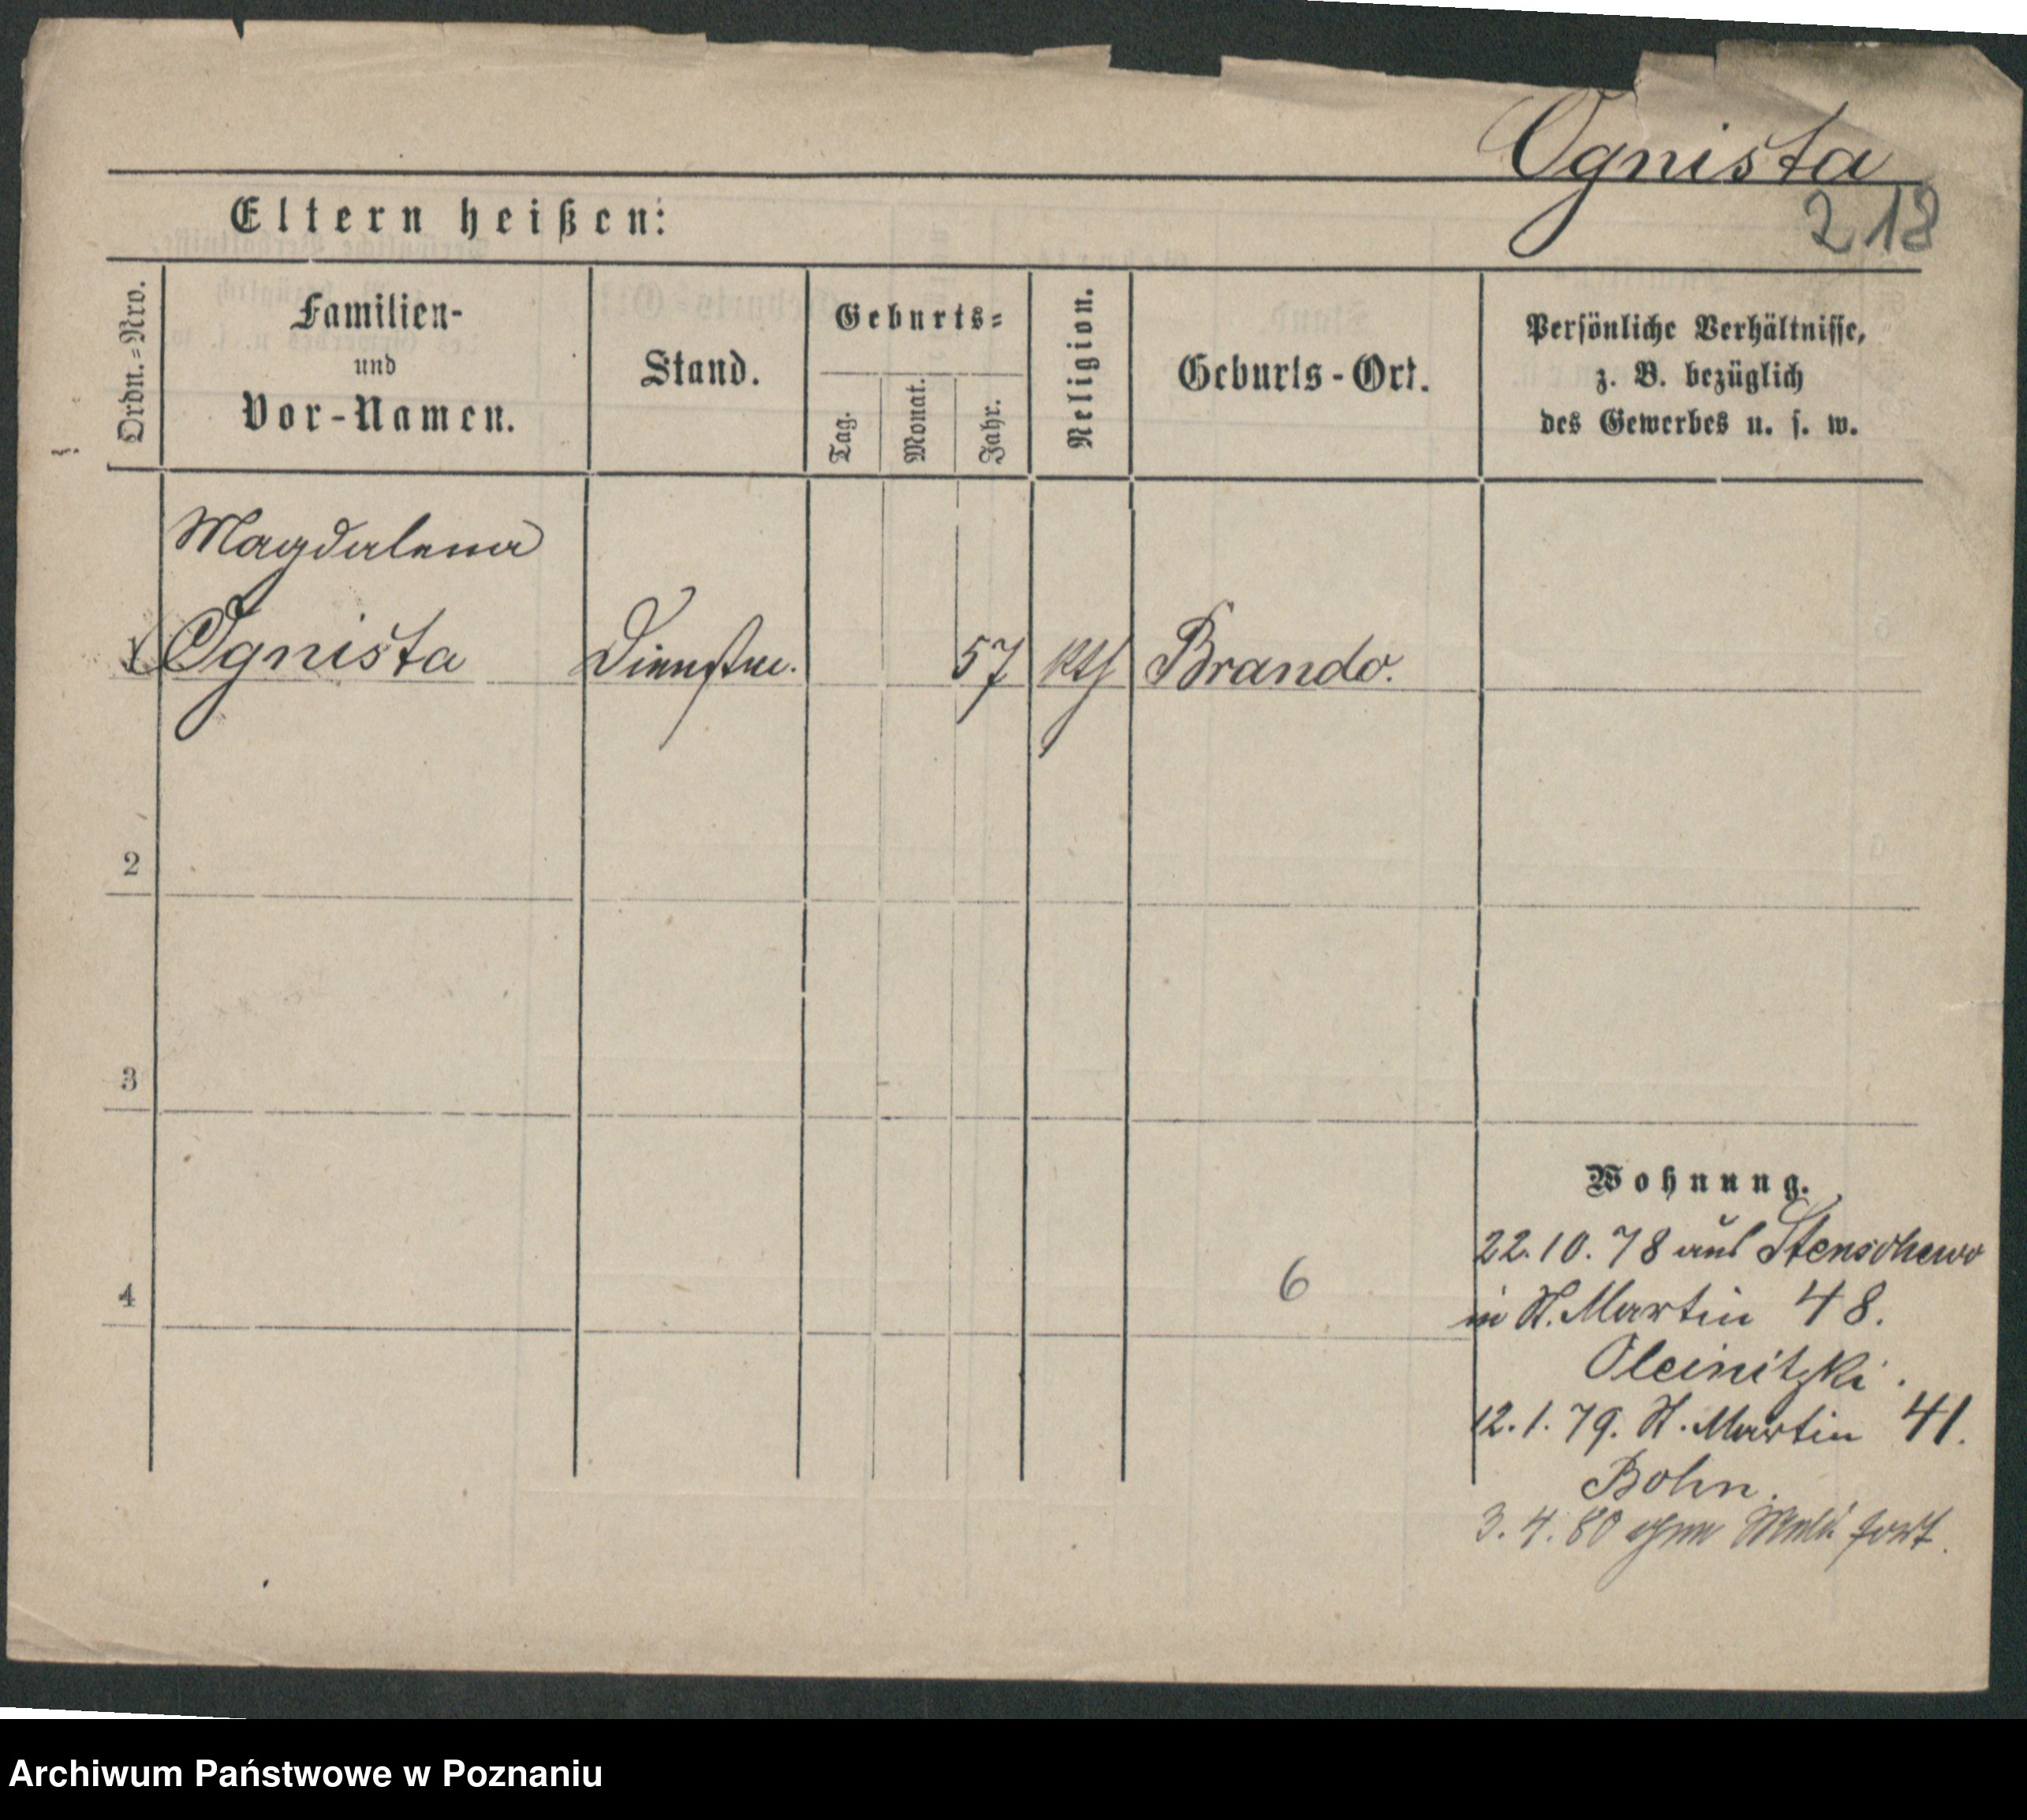 Ognista
218
Eltern heißen:
Ordn.=Nro.
Familien-
und
Vor-Namen.
Stand.
Geburts=
Tag.
Monat.
Jahr.
Religion.
Geburts-Ort.
Persönliche Verhältnisse,
z. B. bezüglich
des Gewerbes u. s. w.
Magdalena
1 Ognista Dienstm. 57 kth Brando.
2
3
4
6
Wohnung.
22.10.78 aus Stenschewo
in St. Martin 48.
Oleinitzki.
12.1.79. St. Martin 41.
Bohn.
3.4.80 ohne Meld fort.
Archiwum Państwowe w Poznaniu